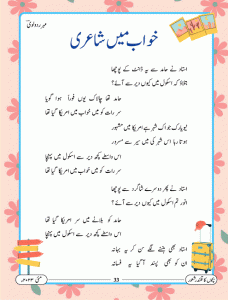 خواب میں شاعری
استاد نے حامد سے یہ ڈانٹ کے پوچھا
بتلاؤ کہ اسکول میں کیوں دیر سے آئے؟
حامد تھا چالاک یوں فوراً ہوا گویا
سر رات کو میں خواب میں امریکا گیا تھا
نیویارک جو اک شہر ہے امریکا میں مشہور
ہوتا رہا اس شہر کی میں سیر سے مسرور
اس واسطے کچھ دیر سے اسکول میں پہنچا
سر رات کو میں خواب میں امریکا گیا تھا
استاد نے پھر دوسرے شاگرد سے پوچھا
انور تم اسکول میں کیوں دیر سے آئے؟
حامد کو بلانے میں سر امریکا گیا تھا
اس واسطے کچھ دیر سے اسکول میں پہنچا
استاد بھی ہنسنے لگے سن کر یہ بہانہ
ان کو بھی پسند آ گیا یہ فسانہ
33